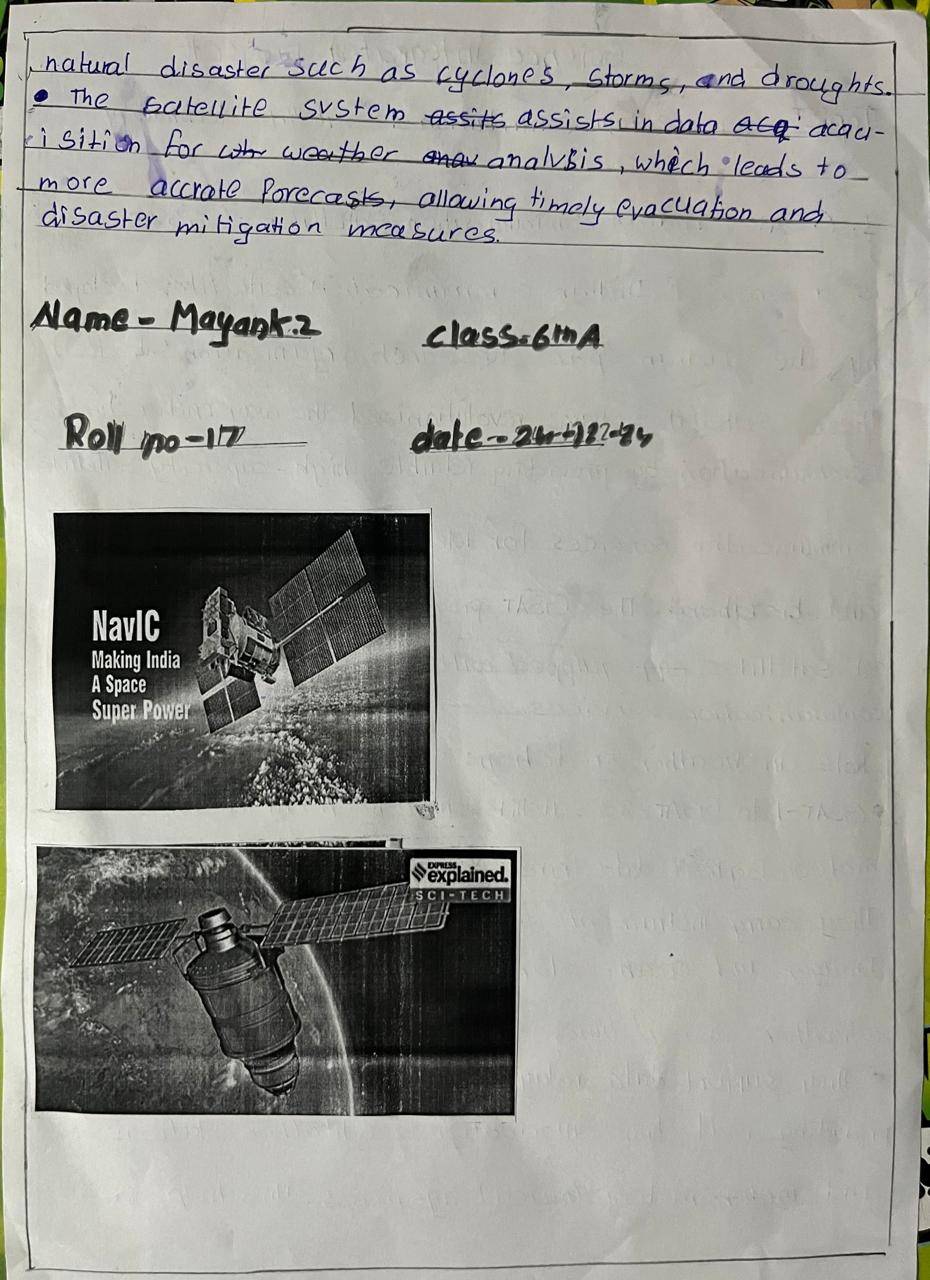 natural disaster such as cyclones, storms, and droughts.
• The satellite system assits assists in data acq acaci-
isition for wh weather anav analysis, which leads to
more accrate Porecasts, allowing timely evacuation and
disaster mitigation measures.
Name - Mayank.2
class-6th A
Roll no-17
date -
NavIC
Making India
A Space
Super Power
EXPRESS
explained.
SCI-TECH